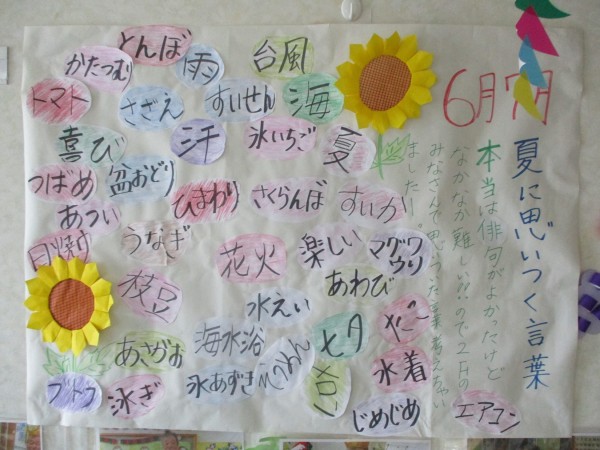 6月7月
夏に思いつく言葉
本当は俳句がよかったけど
なかなか難しい!!ので2Fの
みなさんで思いつた言葉書えちゃい
ました!!
とんぼ
かたつむり
雨
台風
トマト
さざえ
すいせん
海
喜び
汗
氷いちご
夏
つばめ
盆おどり
ひまわり
さくらんぼ
すいか
あつい
日焼け
うなぎ
花火
楽しい
マグワ
ウリ
あわび
枝豆
水えい
あさがお
海水浴
七夕
たこ
ブドウ
泳ぎ
氷あずき
そうめん
メロン
水着
じめじめ
エアコン